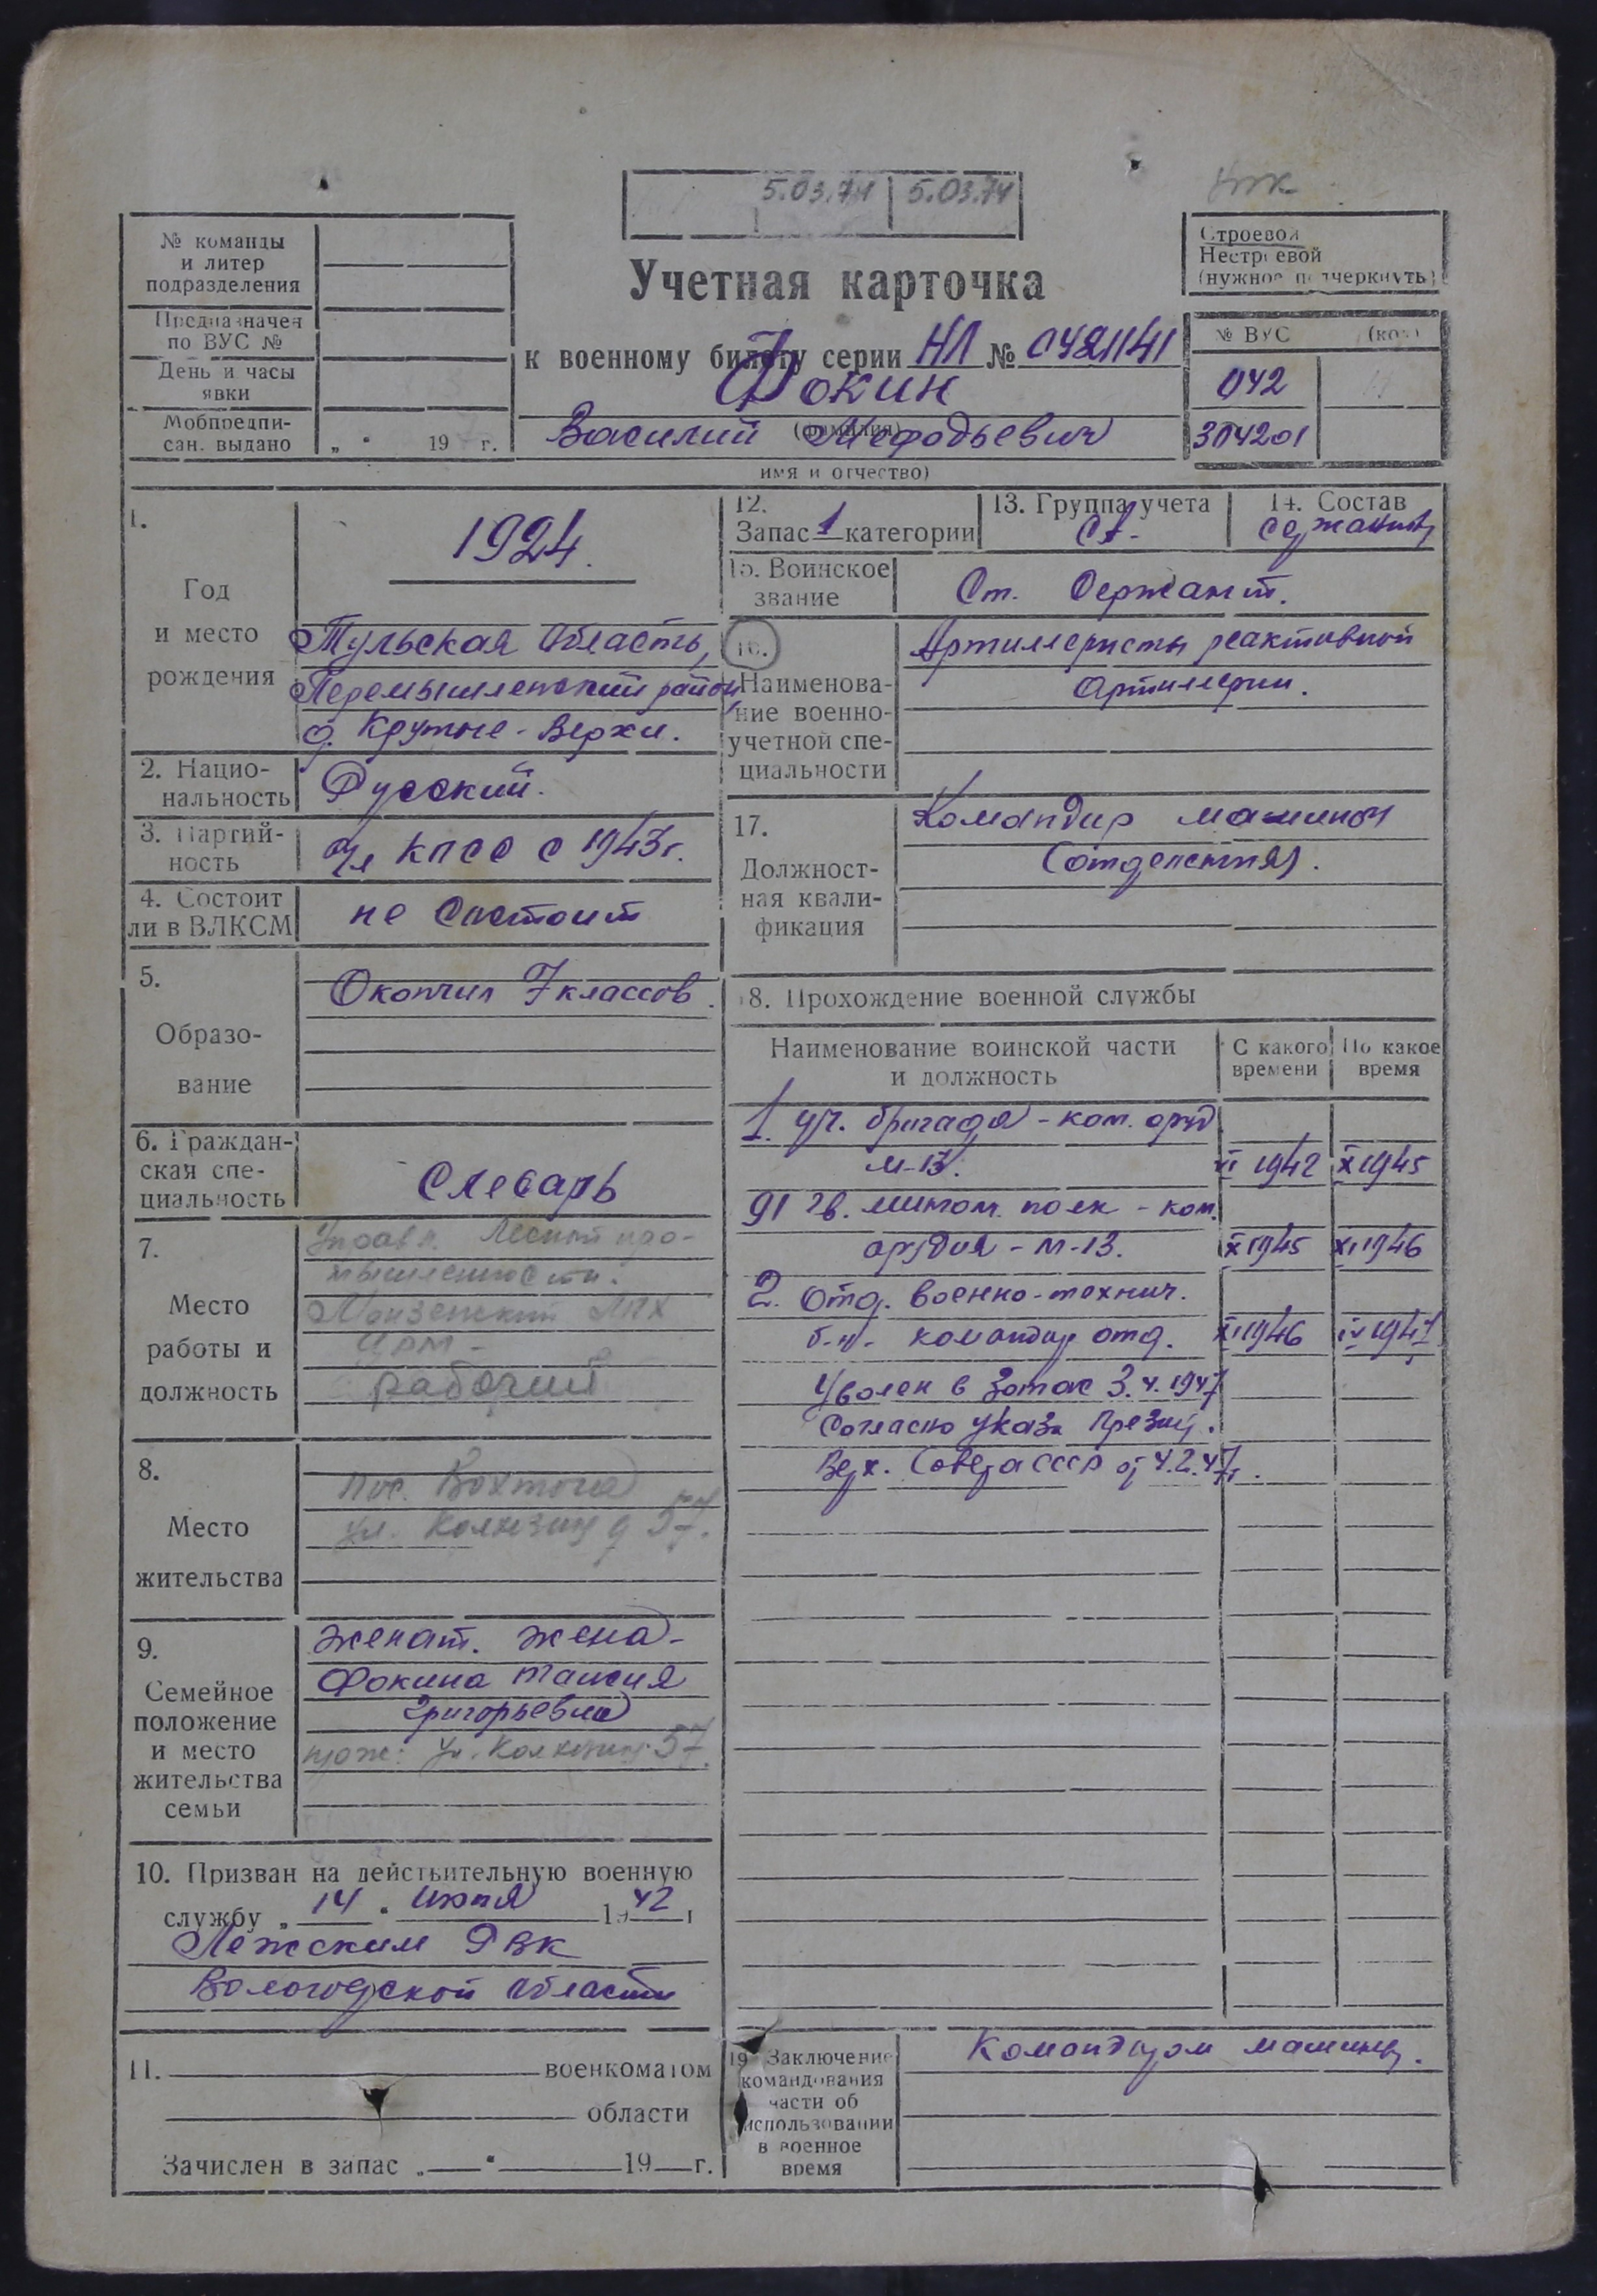 5.03.74 5.03.74
№ команды
и литер
подразделения
Предназначен
по ВУС №
День и часы
явки
Мобпредпи-
сан. выдано „ “ 19 г.
Учетная карточка
к военному билету серии НЛ № 0421141
Фокин
(фамилия)
Василий Мефодьевич
имя и отчество)
Строевой
Нестроевой
(нужное подчеркнуть)
№ ВУС (код)
042
304201
1.
Год
и место
рождения
1924.
Тульская область,
Перемышленский район,
д. Крутые-Верхи.
2. Нацио-
нальность
Русский.
3. Партий-
ность
Чл КПСС с 1943г.
4. Состоит
ли в ВЛКСМ
не состоит
5.
Образо-
вание
Окончил 7 классов.
6. Граждан-
ская спе-
циальность
Слесарь
7.
Место
работы и
должность
Управл. Лесной про-
мышленности.
Монзенский ЛПХ
рабочий
8.
Место
жительства
пос. Вохтога
ул. Колхозн д 57.
9.
Семейное
положение
и место
жительства
семьи
женат. жена-
Фокина Таисия
Григорьевна
ул. Колхозн 57.
10. Призван на действительную военную
службу „ 14 “ июня 1942 г
Лежским РВК
Вологодской области
11. военкоматом
области
Зачислен в запас „ “ 19 г.
12.
Запас 1 категории
13. Группа учета
СА.
14. Состав
сержанты
15. Воинское
звание
Ст. Сержант.
16.
Наименова-
ние военно-
учетной спе-
циальности
Артиллеристы реактивной
артиллерии.
17.
Должност-
ная квали-
фикация
Командир машины
(отделения).
18. Прохождение военной службы
Наименование воинской части
и должность
С какого
времени
По какое
время
1. уч. бригада - ком. оруд
М-13. VI 1942 X 1945
91 гв. мином. полк - ком.
орудия - М-13. X 1945 XI 1946
2. Отд. военно-технич.
б-н. командир отд. XI 1946 IV 1947
Уволен в запас 3.4.1947
Согласно указа Презид.
Верх. Совета СССР от 4.2.47г.
19 Заключение
командования
части об
использовании
в военное
время
Командиром машины.